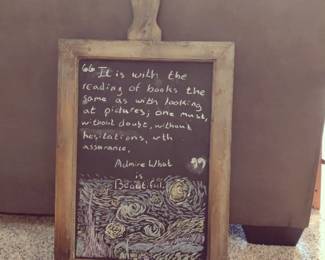 “It is with the
reading of books the
same as with looking
at pictures; one must,
without doubt, without
hesitations, with
assurance,
Admire What ”
is
Beautiful.